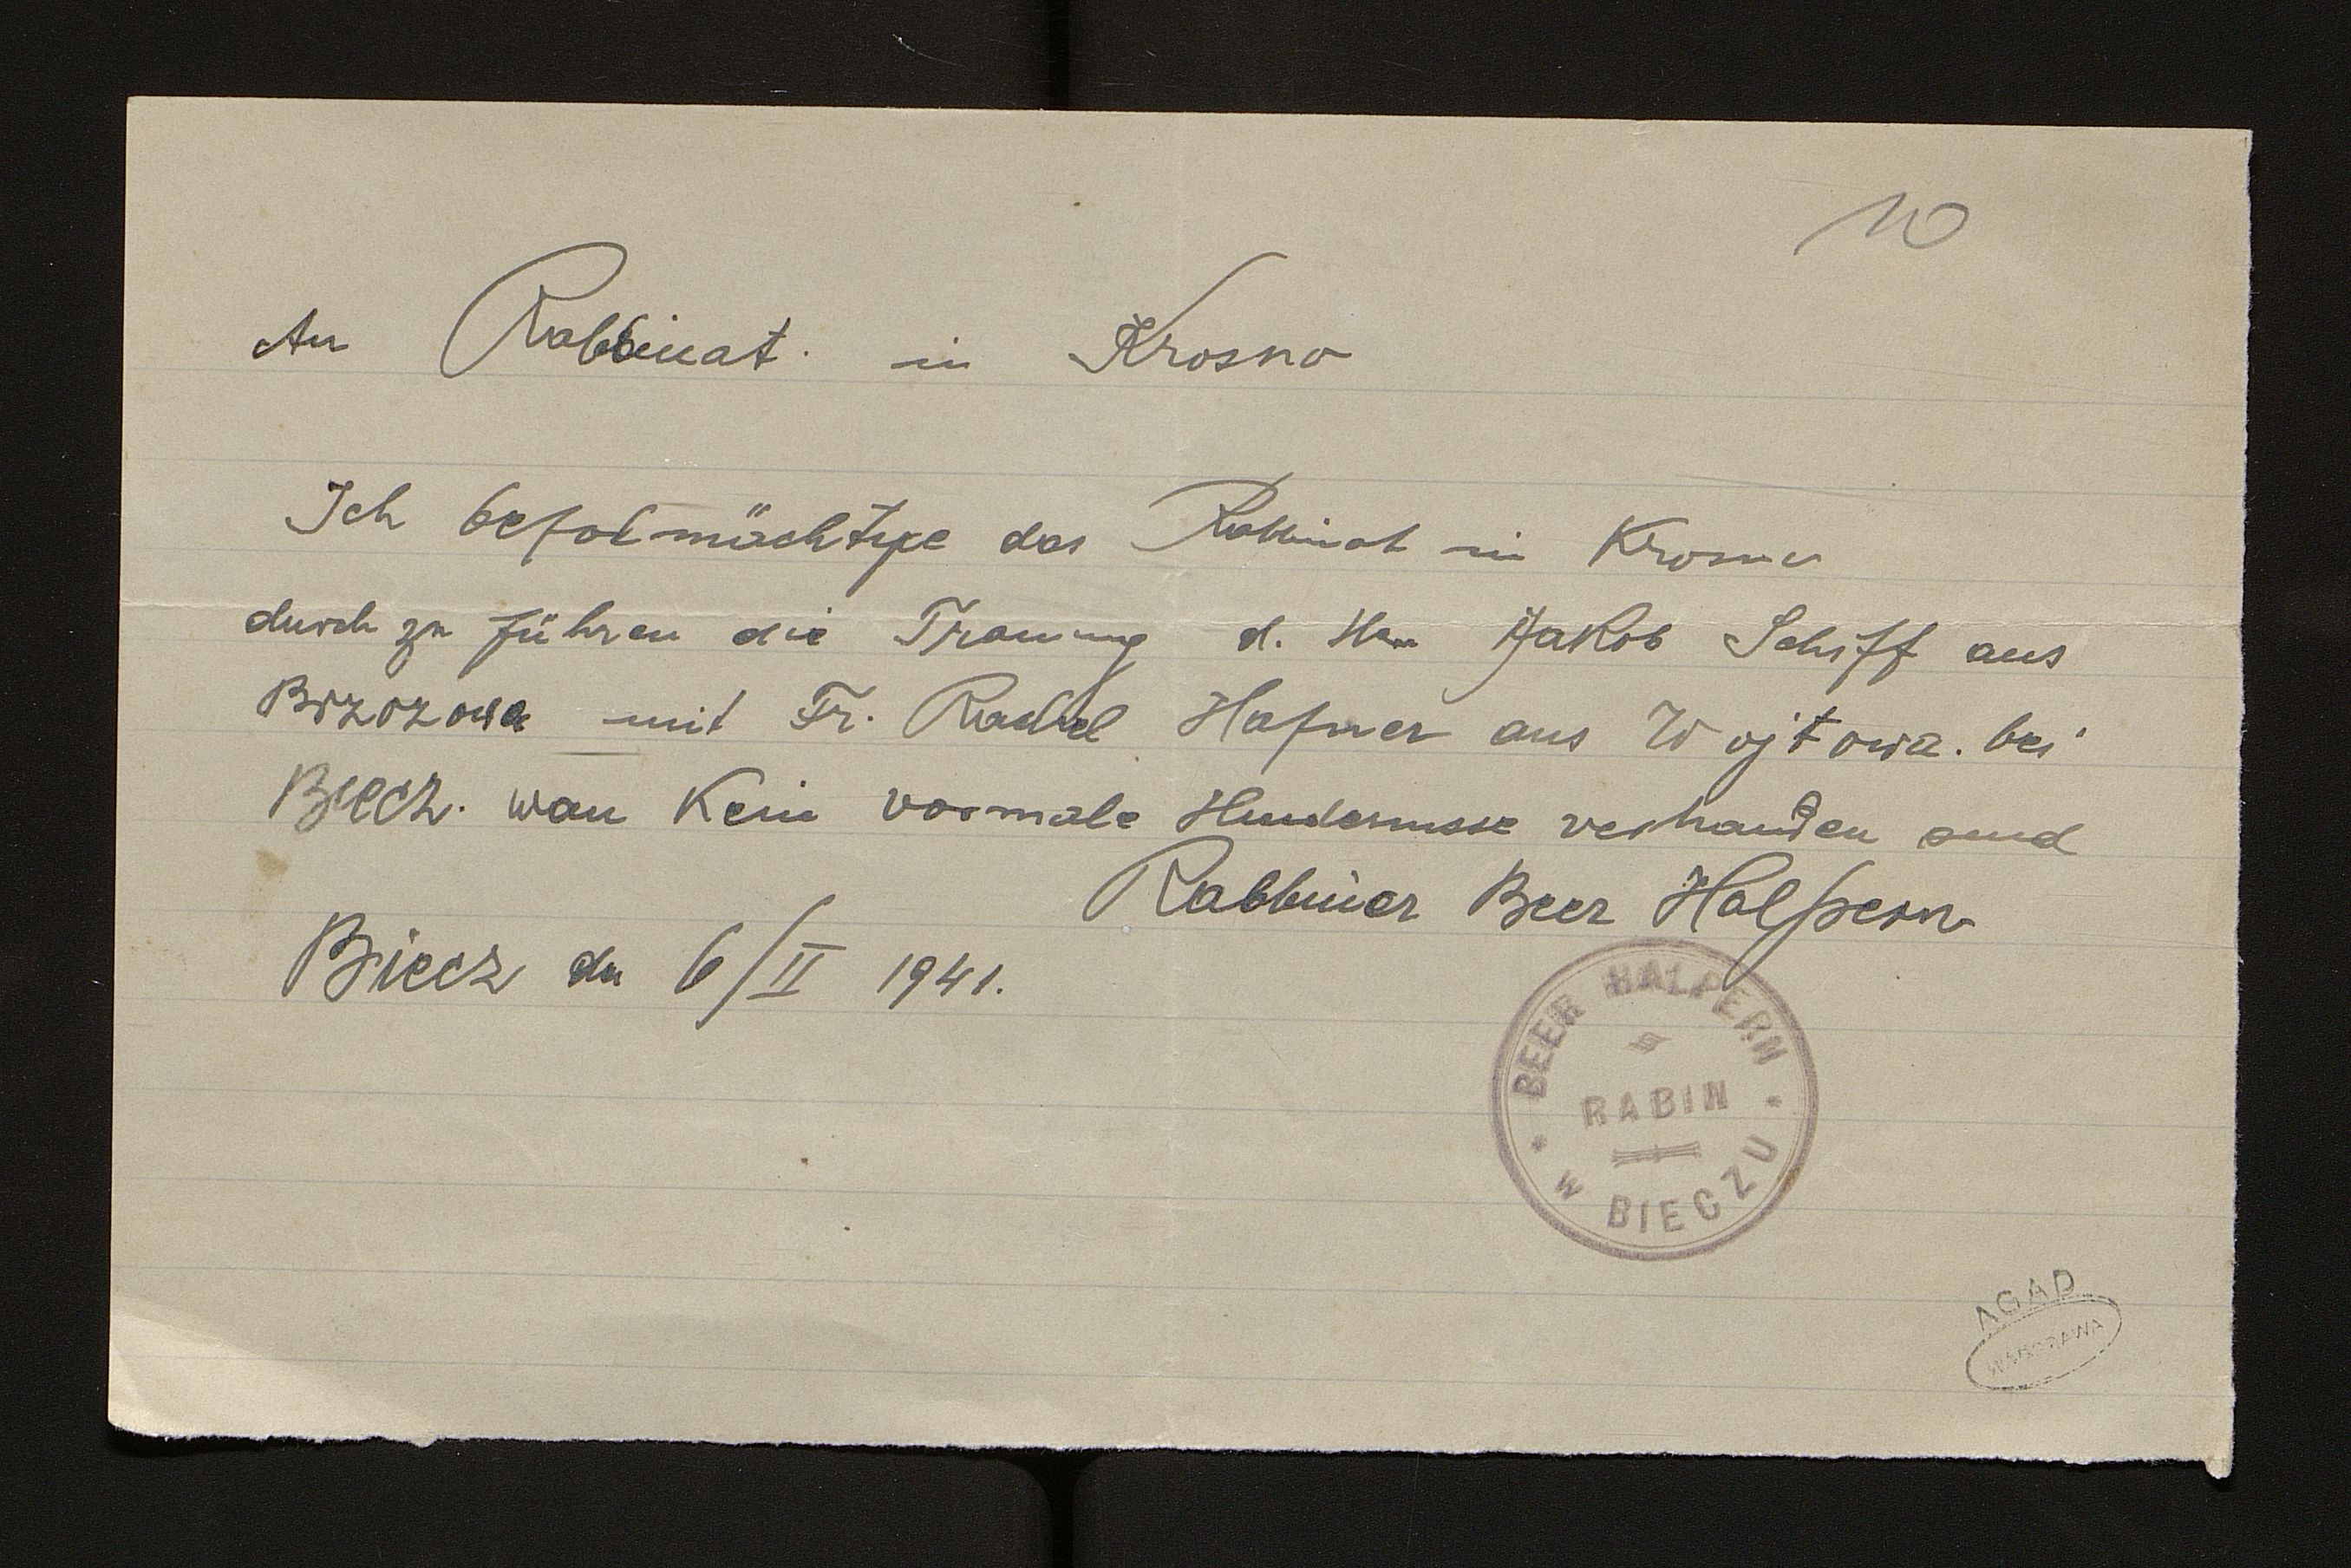 10
An Rabbinat in Krosno
Ich befolmächtige das Rabbinat in Krosno
durch zu führen die Trauung d. Hrn Jakob Schiff aus
Brzozowa mit Fr. Rachel Hafner aus Wojtowa. bei
Biecz. wan kein vormale Hindernisse verhanden sind
Rabbiner Beer Halpern
Biecz den 6/II 1941.
BEER HALPERN
RABIN
W BIECZU
AGAD
WARSZAWA